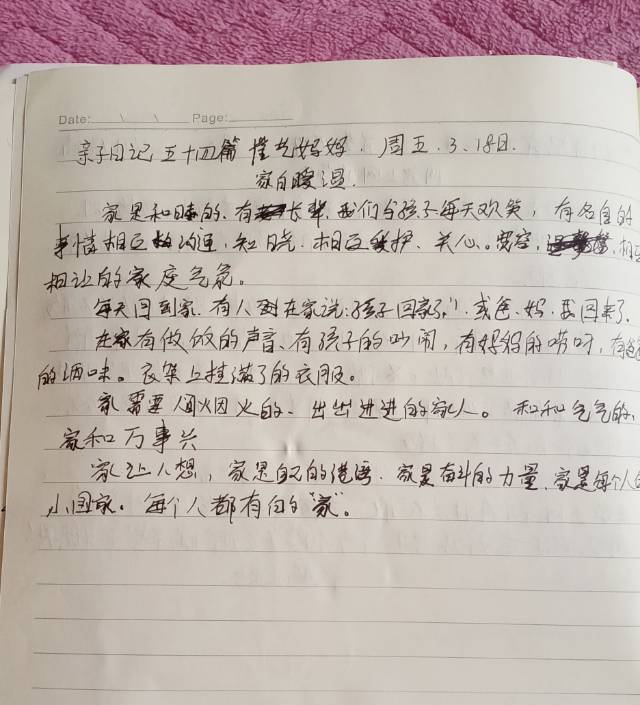 Date: \ \ Page:
亲子日记 五十四篇 妈妈. 周五. 3. 18日.
家的暖温.
家是和睦的. 有长辈. 我们与孩子每天欢笑, 有各自的
事情相互沟通. 知晓. 相互爱护. 关心。宽容, 相互
相让的家庭气氛。
每天回到家. 有人在家说:孩子回家了, 或爸. 妈. 我回来了.
在家有做饭的声音、有孩子的吵闹, 有妈妈的唠叨, 有爸爸
的酒味。衣架上挂满了的衣服。
家需要人间烟火的. 出出进进的家人。和和气气的,
家和万事兴
家让人想, 家是自己的港湾. 家是奋斗的力量, 家是每个人的
小国家. 每个人都有自的“家”。